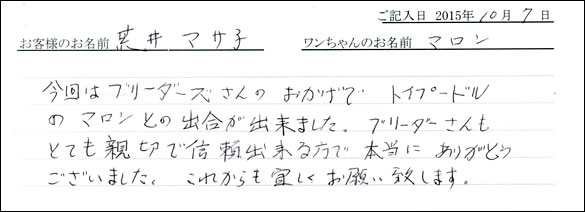 ご記入日 2015年10月7日
お客様のお名前 荒井 マサ子 ワンちゃんのお名前 マロン
今回はブリーダーズさんの おかげで トイプードル
の マロンとの出合が出来ました。ブリーダーさんも
とても親切で信頼出来る方で 本当に ありがとう
ございました。これからも宜しくお願い致します。